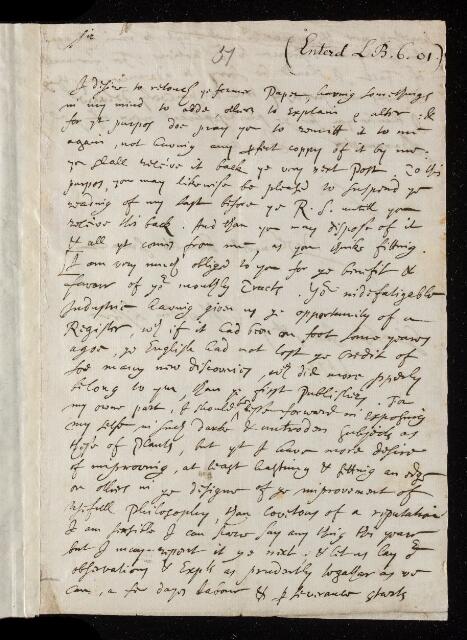 Sir
51
(Enterd L.B. 6. 01.)
I desire to retouch ye former Paper, having some things
in my mind to adde, others to Explain & alter: &
for yt purpos doe pray you to remitt it to me
again, not having any copy of it by me.
you shall receive it back ye very next Post. To this
purpos, you may likewise be pleased to suspend ye
reading of my last before ye R. S. untill you
receive this back. And than you may dispose of it
& all yt comes from me, as you think fitting.
I am very much obliged to you for ye benefit &
favour of yor monthly Tracts. Yor indefatigable
Industrie having given us ye opportunity of a
Register, wch if it had been on foot some years
agoe, ye English had not lost ye credit of
soe many new discoveries, wch did more properly
belong to ym, than ye first Publishers. For
my owne part, I should be forward in exposing
my selfe in such darke & untrodden subjects as
those of Plants, but yt I have more desire
of improving, at least hastning & setting an edge
on others in ye designe of ye improvement of
usefull Philosophy, than covetous of a reputation
I am sensible I can scarce say any thing this year
but I may report it ye next. & let us lay or
observations & Expts as prudently together as we
can, a few days labour & perseverance starts